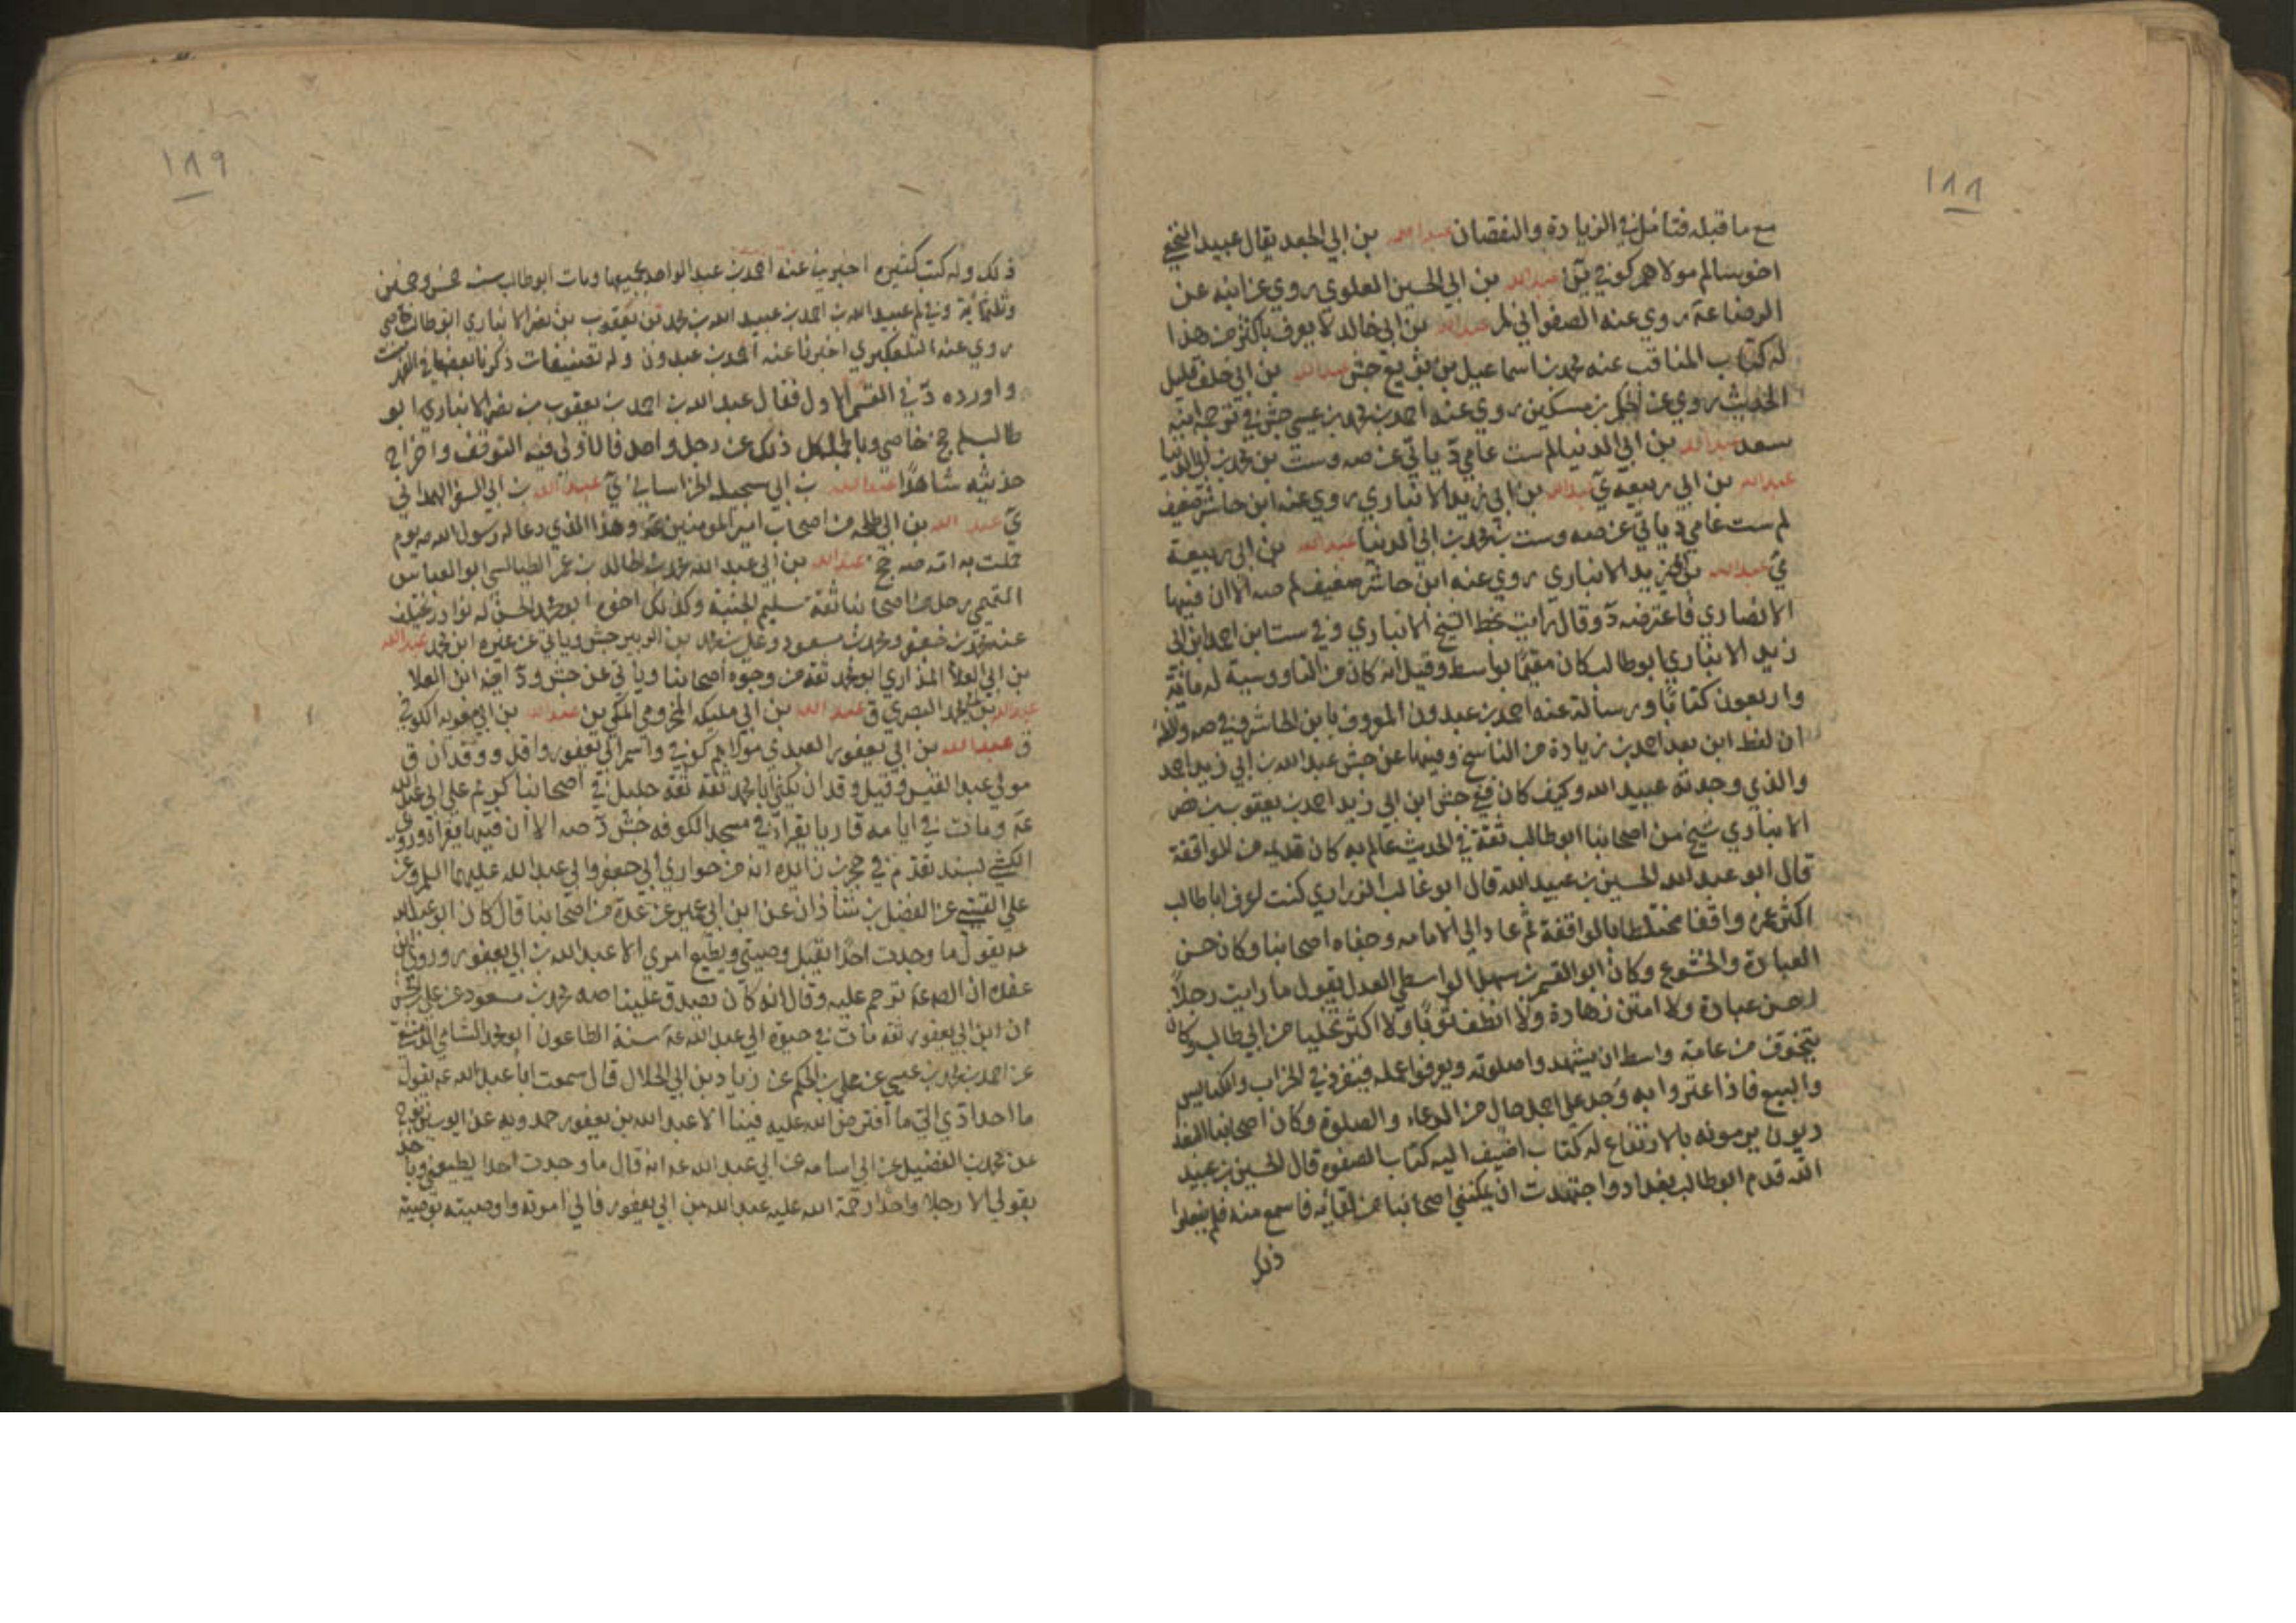 ١٨٨
مع ما قبله فتامل في الزيادة والنقصان عبد الله بن ابي الجعد يقال عبيد النخعي
اخو سالم مولاهم كوفي ين عبد الله بن ابي الحسين العلوي روي عن ابيه عن
الرضا عه روي عنه الصفواني لم عبد الله بن ابي خالد لا يعرف باكثر من هذا
له كتاب المناقب عنه محمد بن اسماعيل بن بزيع جش عبد الله بن ابي خلف قليل
الحديث روي عن الحكم بن مسكين روي عنه احمد بن محمد بن عيسي جش في ترجمة ابنه
سعد عبد الله بن ابي الدنيا لم ست عامي د ياتي عن صه وست بن محمد بن ابي الدنيا
عبد الله بن ابي ربيعه ي عبد الله بن ابي زيد الانباري روي عنه ابن حاشر ضعيف
لم ست عامي د ياتي عن صه وست بن محمد بن ابي الدنيا عبد الله بن ابي ربيعة
ي عبد الله بن ابي زيد الانباري روي عنه ابن حاشر ضعيف لم صه الا ان فيها
الانصاري فاعترضه د وقال رايت بخط الشيخ الانباري وفي ست ابن احمد ابن ابي
زيد الانباري ابو طالب كان مقيما بواسط وقيل انه كان من الناووسية له مائة
واربعون كتابا ورسالة عنه احمد بن عبدون المعروف بابن الحاشر وفي صه والله
ان لفظ ابن بعد احمد بن زيادة من الناسخ وفيها عن جش عبد الله بن ابي زيد احمد
والذي وجدته عبيد الله وكيف كان ففي جش ابن ابي زيد احمد بن يعقوب بن نصر
الانباري شيخ من اصحابنا ابو طالب ثقة في الحديث عالم به كان قديما من الواقفة
قال ابو عبد الله الحسين بن عبيد الله قال ابو غالب الزراري كنت اعرف ابا طالب
اكثر عمره واقفا مختلطا بالواقفة ثم عاد الي الامامه وجفاه اصحابنا وكان حسن
العبادة والخشوع وكان ابو القسم بن سهل الواسطي العدل يقول ما رايت رجلا
احسن عبادة ولا امتن زهادة ولا انظف ثوبا ولا اكثر تخليا من ابي طالب وكان
يتخوف من عامة واسط ان يشهدوا صلوته ويعرفوا عمله فينفرد في الخراب والكنايس
والبيع فاذا عثروا به وجد علي اجمل حال من الدعاء والصلوة وكان اصحابنا البغدا
ديون يرمونه بالارتفاع له كتاب اضيف اليه كتاب الصفوه قال الحسين بن عبيد
الله قدم ابو طالب بغداد واجتهدت ان يمكنني اصحابنا من لقائه فاسمع منه فلم يفعلوا
ذلك
١٨٩
ذلك وله كتب كثيره اخبرني عنه احمد بن عبد الواحد بجميعها ومات ابو طالب سنه خمس وخمسين
وثلثمائة وفي لم عبيد الله بن احمد بن عبيد الله بن محمد بن يعقوب بن نصر الانباري ابو طالب خاصي
روي عنه التلعكبري اخبرنا عنه احمد بن عبدون وله تصنيفات ذكرنا بعضها في الفهرست
واورده د في القسم الاول فقال عبد الله بن احمد بن يعقوب بن نصر الانباري ابو
طالب لم جخ خاصي وبالجملة كل ذلك عن رجل واحد فالاولي فيه التوقف واخراج
حديثه شاهدا عبد الله بن ابي سجيله الخراساني ي عبد الله بن ابي السفر الهمداني
ي عبد الله بن ابي طلحه من اصحاب امير المومنين عه وهذا الذي دعا له رسول الله صه يوم
حملت به امه صه جخ عبد الله بن ابي عبد الله محمد بن خالد بن عمر الطيالسي ابو العباس
التميمي رجل من اصحابنا ثقة سليم الجنبة وكذلك اخوه ابو محمد الحسن له نوادر يختلف
عنه محمد بن جعفر ومحمد بن مسعود وعلي بن محمد بن الزبير جش وياتي عن غيره ابن محمد عبد الله
بن ابي العلا المذاري ابو محمد ثقه من وجوه اصحابنا وياتي عن جش ود ايضه ابن العلا
عبد الله بن محمد البصري ق عبد الله بن ابي مليكه المخزومي المكي ين عبد الله بن ابي يعفور الكوفي
ق عبد الله بن ابي يعفور العبدي مولاهم كوفي واسم ابي يعفور واقد ووقدان ق
مولي عبد القيس وقيل وقدان يكني ابا محمد ثقة ثقة جليل في اصحابنا كريم علي ابي عبد الله
عه ومات في ايامه قاريا يقرا في مسجد الكوفه جش د صه الا ان فيها يقرا وروي
الكشي بسند تقدم في حجر بن زايده انه من حواري ابي جعفر وابي عبد الله عليهما السلم وعن
علي القتيبي عن الفضل بن شاذان عن ابن ابي عمير عن عدة من اصحابنا قال كان ابو عبد الله
عه يقول ما وجدت احدا يقبل وصيتي ويطيع امري الا عبد الله بن ابي يعفور وروي ابن
عقده ان الصه عه ترحم عليه وقال انه كان يصدق علينا صه محمد بن مسعود عن علي بن الحسن
ان ابن ابي يعفور ثقه مات في حيوة ابي عبد الله عه سنة الطاعون ابو محمد الشامي الدمشقي
عن احمد بن محمد بن عيسي عن علي بن الحكم عن زياد بن ابي الحلال قال سمعت ابا عبد الله عه يقول
ما احد ادي الي ما افترض الله عليه فينا الا عبد الله بن يعفور حمدويه عن ايوب بن نوح
عن محمد بن الفضيل عن ابي اسامه عن ابي عبد الله عه انه قال ما وجدت احدا يطيعني وياخذ
بقولي الا رجلا واحدا رحمة الله عليه عبد الله بن ابي يعفور فاني امرته واوصيته بوصيته